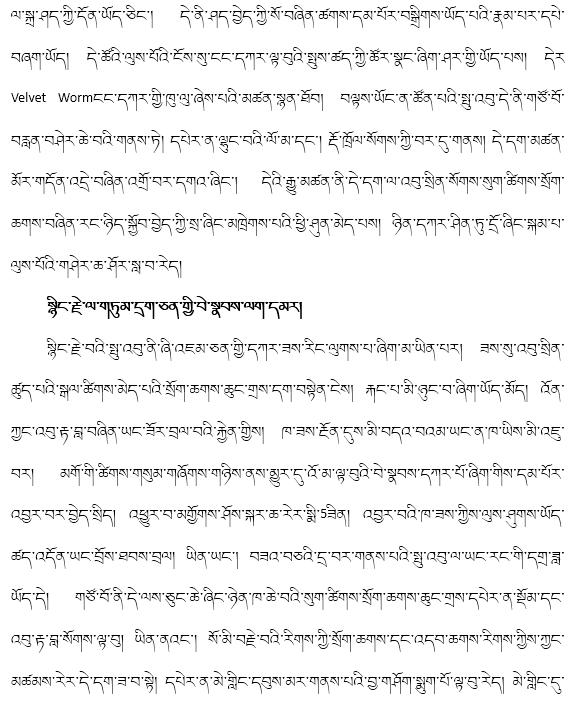 ལ་སྐྲ་ཤད་ཀྱི་དོན་ཡོད་ཅིང་། དེ་ནི་ཤད་བྱེད་ཀྱི་སོ་བཞིན་ཚགས་དམ་པོར་བསྒྲིགས་ཡོད་པའི་རྣམ་པར་དཔེ་
བཞག་ཡོད། དེ་ཚོའི་ལུས་པོའི་ངོས་སུ་ངང་དཀར་ལྟ་བུའི་སྤུས་ཚད་ཀྱི་ཚོར་སྣང་ཞིག་ཤར་གྱི་ཡོད་པས། དེར་
Velvet Wormངང་དཀར་གྱི་ཁུ་ལུ་ཞེས་པའི་མཚན་སྙན་ཐོབ། བལྟས་ཡོང་ན་ཚོན་པའི་སྤུ་འབུ་དེ་ནི་གཙོ་བོ་
བརླན་བཤེར་ཆེ་བའི་གནས་ཏེ། དཔེར་ན་ལྷུང་བའི་ལོ་མ་དང་། རྡོ་ཁྲོལ་སོགས་ཀྱི་བར་དུ་གནས། དེ་དག་མཚན་
མོར་གདོན་འདྲེ་བཞིན་འགྲོ་བར་དགའ་ཞིང་། དེའི་རྒྱུ་མཚན་ནི་དེ་དག་ལ་འབུ་སྲིན་སོགས་སུག་ཚིགས་སྲོག་
ཆགས་བཞིན་རང་ཉིད་སྐྱོབ་བྱེད་ཀྱི་སྲ་ཞིང་མཁྲེགས་པའི་ཕྱི་ཤུན་མེད་པས། ཉིན་དཀར་ཤིན་ཏུ་དྲོ་ཞིང་སྐམ་པ་
ལུས་པོའི་གཤེར་ཆ་ཤོར་སླ་བ་རེད།
སྙིང་རྗེ་ལ་གཏུམ་དྲག་ཅན་གྱི་བེ་སྣབས་ལག་དམར།
སྙིང་རྗེ་བའི་སྤུ་འབུ་ནི་ཞི་འཇམ་ཅན་གྱི་དཀར་ཟས་རིང་ལུགས་པ་ཞིག་མ་ཡིན་པར། ཟས་སུ་འབུ་སྲིན་
ཚུད་པའི་སྒལ་ཚིགས་མེད་པའི་སྲོག་ཆགས་ཆུང་གྲས་དག་བསྟེན་ངེས། རྐང་པ་མི་ཉུང་བ་ཞིག་ཡོད་མོད། འོན་
ཀྱང་འབུ་རྟ་བླ་བཞིན་ཡང་ཟོར་བྲལ་བའི་རྐྱེན་གྱིས། ཁ་ཟས་རྔོན་དུས་མི་བདའ་བའམ་ཡང་ན་ཁ་ཡིས་མི་འཇུ་
བར། མགོ་གི་ཚིགས་གསུམ་གཞོགས་གཉིས་ནས་མྱུར་དུ་འོ་མ་ལྟ་བུའི་བེ་སྣབས་དཀར་པོ་ཞིག་གིས་དམ་པོར་
འབྱར་བར་བྱེད་སྲིད། འཕྱུར་བ་མགྱོགས་ཤོས་སྐར་ཆ་རེར་སྨི་5ཟིན། འབྱར་བའི་ཁ་ཟས་ཀྱིས་ལུས་ཤུགས་ཡོད་
ཚད་འདོན་ཡང་བྲོས་ཐབས་བྲལ། ཡིན་ཡང་། བཟའ་བཅའི་དྲ་བར་གནས་པའི་སྤུ་འབུ་ལ་ཡང་རང་གི་དགྲ་ཟླ་
ཡོད་དེ། གཙོ་བོ་ནི་དེ་ལས་ཅུང་ཆེ་ཞིང་ཉེན་ཁ་ཆེ་བའི་སུག་ཚིགས་སྲོག་ཆགས་ཆུང་གྲས་དཔེར་ན་སྡོམ་དང་
འབུ་རྟ་བླ་སོགས་ལྟ་བུ། ཡིན་ནའང་། སོ་མི་བརྗེ་བའི་རིགས་ཀྱི་སྲོག་ཆགས་དང་འདབ་ཆགས་རིགས་ཀྱིས་ཀྱང་
མཚམས་རེར་དེ་དག་ཟ་བ་སྟེ། དཔེར་ན་མེ་གླིང་དབུས་མར་གནས་པའི་བྱ་གཤོག་སྨུག་པོ་ལྟ་བུ་རེད། མེ་གླིང་དུ་